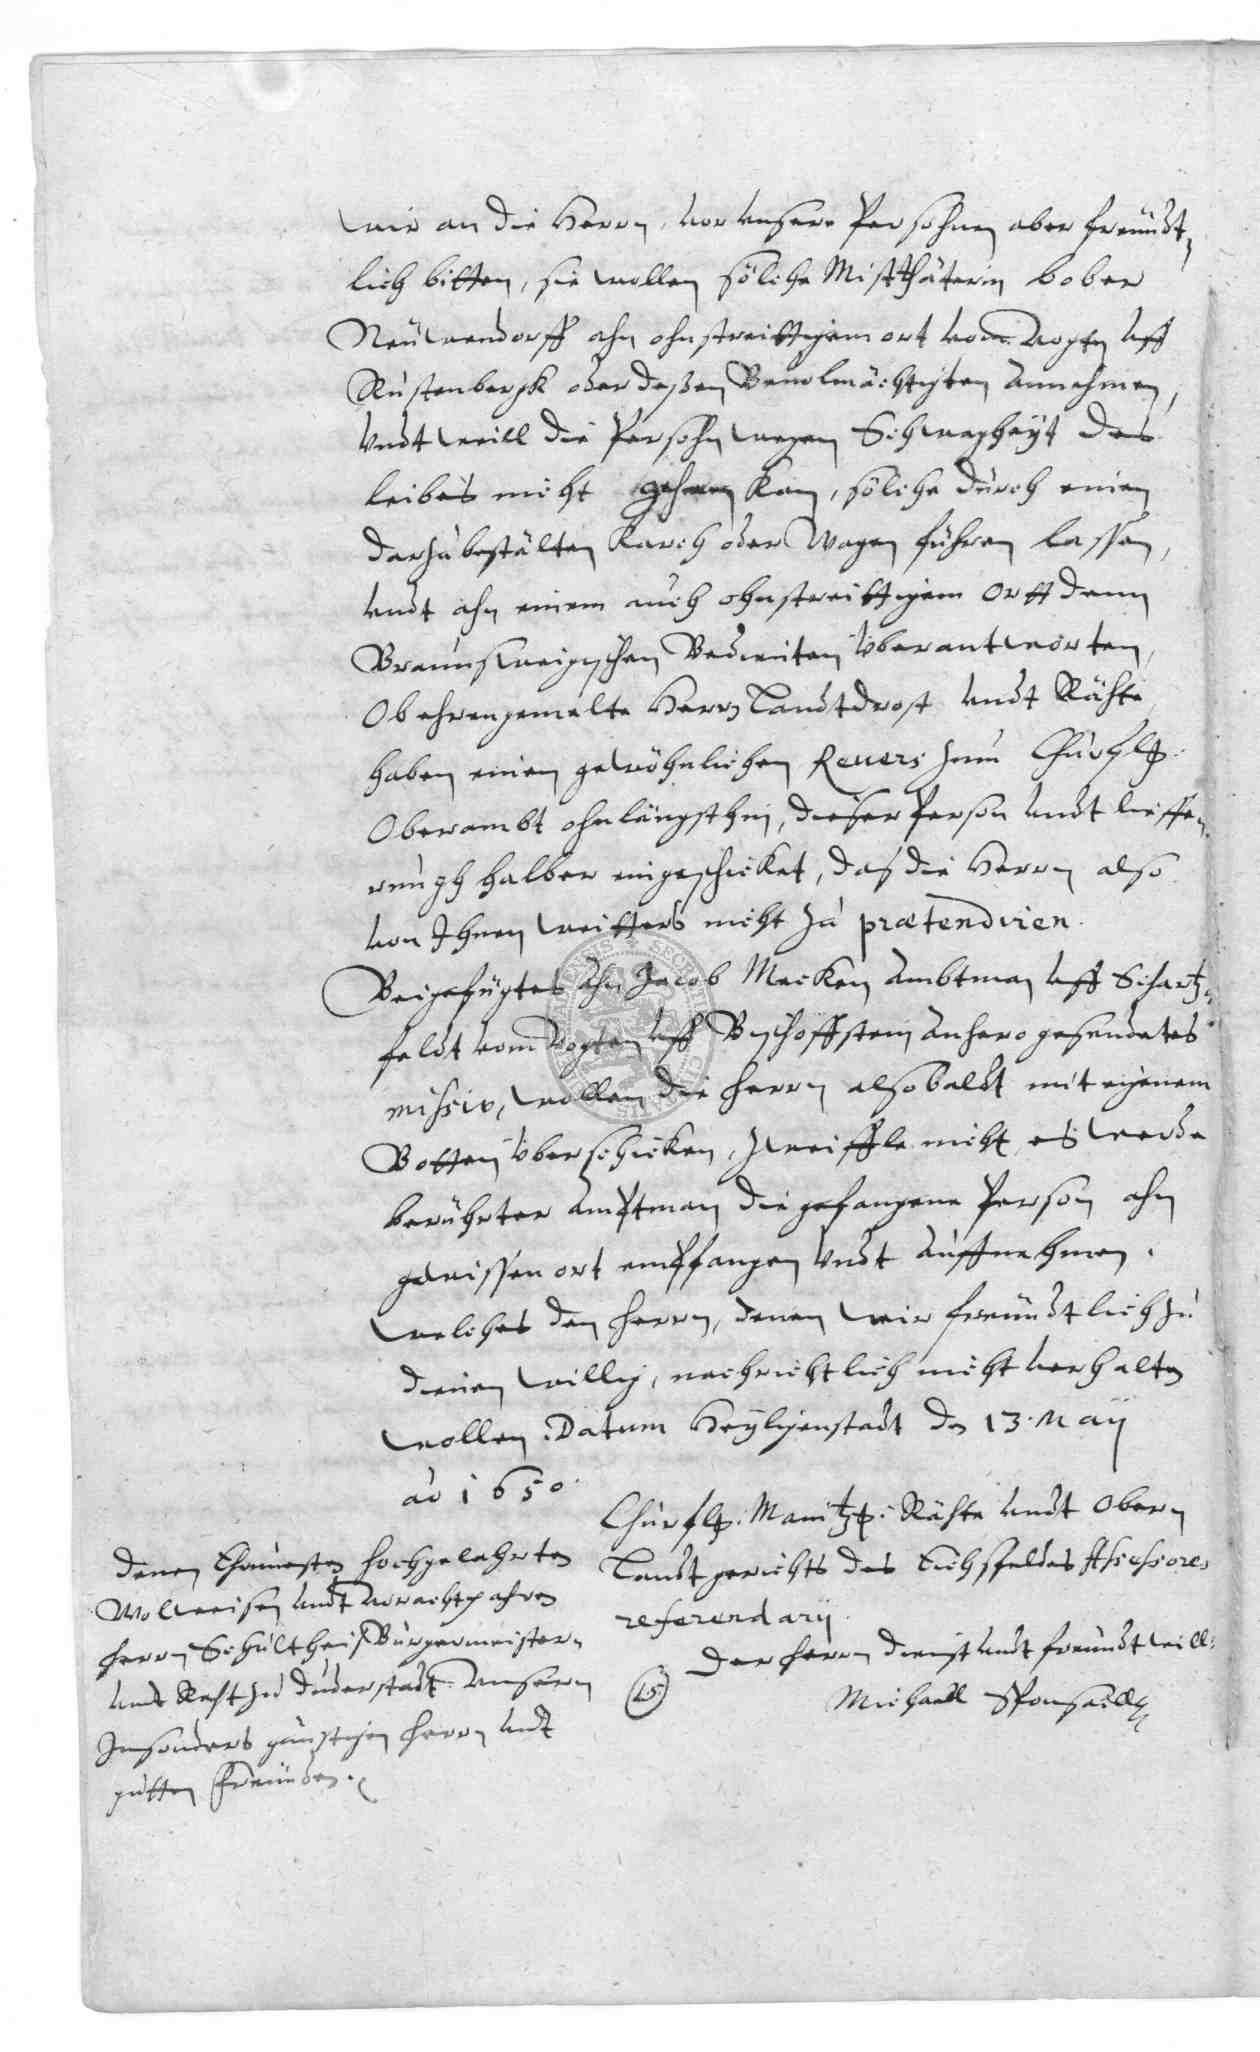 wir an die Herrn, vor unsere Persohnen aber freündt
lich bitten, sie wollen sölche Mistthäterin bober
Neüwendorff ahn ohnstreittigem ort vom Vogten uff
Rustenbergk oder deßen Bevolmächtigten annehmen,
undt weill die Persohn wegen Schwagheyt des
leibes nicht gehen kan, sölche durch einen
darzubestälten Karch oder Wagen führen lassen,
undt ahn einem auch ohnstreittigem Ortt denn
Braunsweigischen Bedienten überantworten,
Obehrengemelte Herrn Landtdrost undt Rähte
haben einen gewöhnlichen Revers zum Churfl:
Oberambt ohnlängsthin, dieser Person undt lieffe
rungh halber eingeschicket, daß die Herrn also
von Ihnen weitters nicht zu prætendiren.
Beigefügtes ahn Jacob Mecken Ambtman uff Schartz
feldt vom Vogten uff Bischoffstein anhero gesendetes
missiv, wollen die Herrn alsobaldt mit eigenem
Botten überschicken, zweiffle nicht, es werde
berührter Amptman die gefangene Person ahn
gewissen ort empfangen undt auffnehmen.
welches den Herrn, denen wir freündtlich zu
dienen willig, nachrichtlich nicht verhalten
wollen. Datum Heyligenstadt den 13. Maij
ao 1650.
Churfl: Maintz: Rähte undt Obern
Landtgerichts des Eichsfeldes Assessores
referendarij.
Der Herrn dienst undt freundtwill:
LS
Michaell
Denen Ehrnvesten Hochgelahrten
Wolweisen undt Vorachtpahren
Herrn Schultheiß Bürgermeistern
undt Raht zu Duderstadt unsern
Insonders günstigen Herrn undt
gutten Freünden.